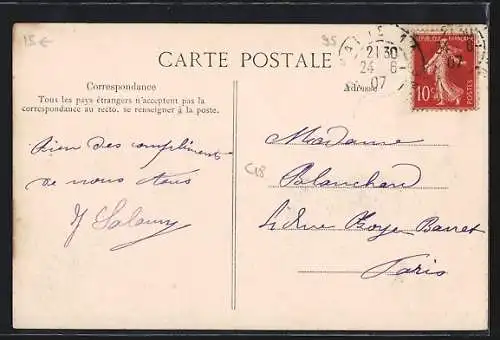 15 €
95
CARTE POSTALE
Correspondance
Tous les pays étrangers n'acceptent pas la
correspondance au recto, se renseigner à la poste.
Adresse
21 30
24 - 6
07
REPUBLIQUE FRANÇAISE
10c
POSTES
Bien des compliments
de nous tous
C18
Madame
Blanchard
Rue Roye
Paris